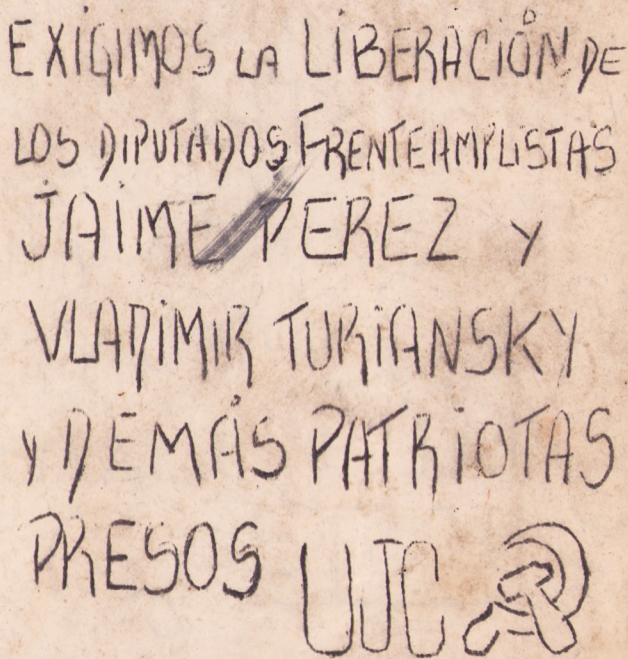 EXIGIMOS LA LIBERACIÓN DE
LOS DIPUTADOS FRENTEAMPLISTAS
JAIME PEREZ Y
VLADIMIR TURIANSKY
Y DEMÁS PATRIOTAS
PRESOS UJC